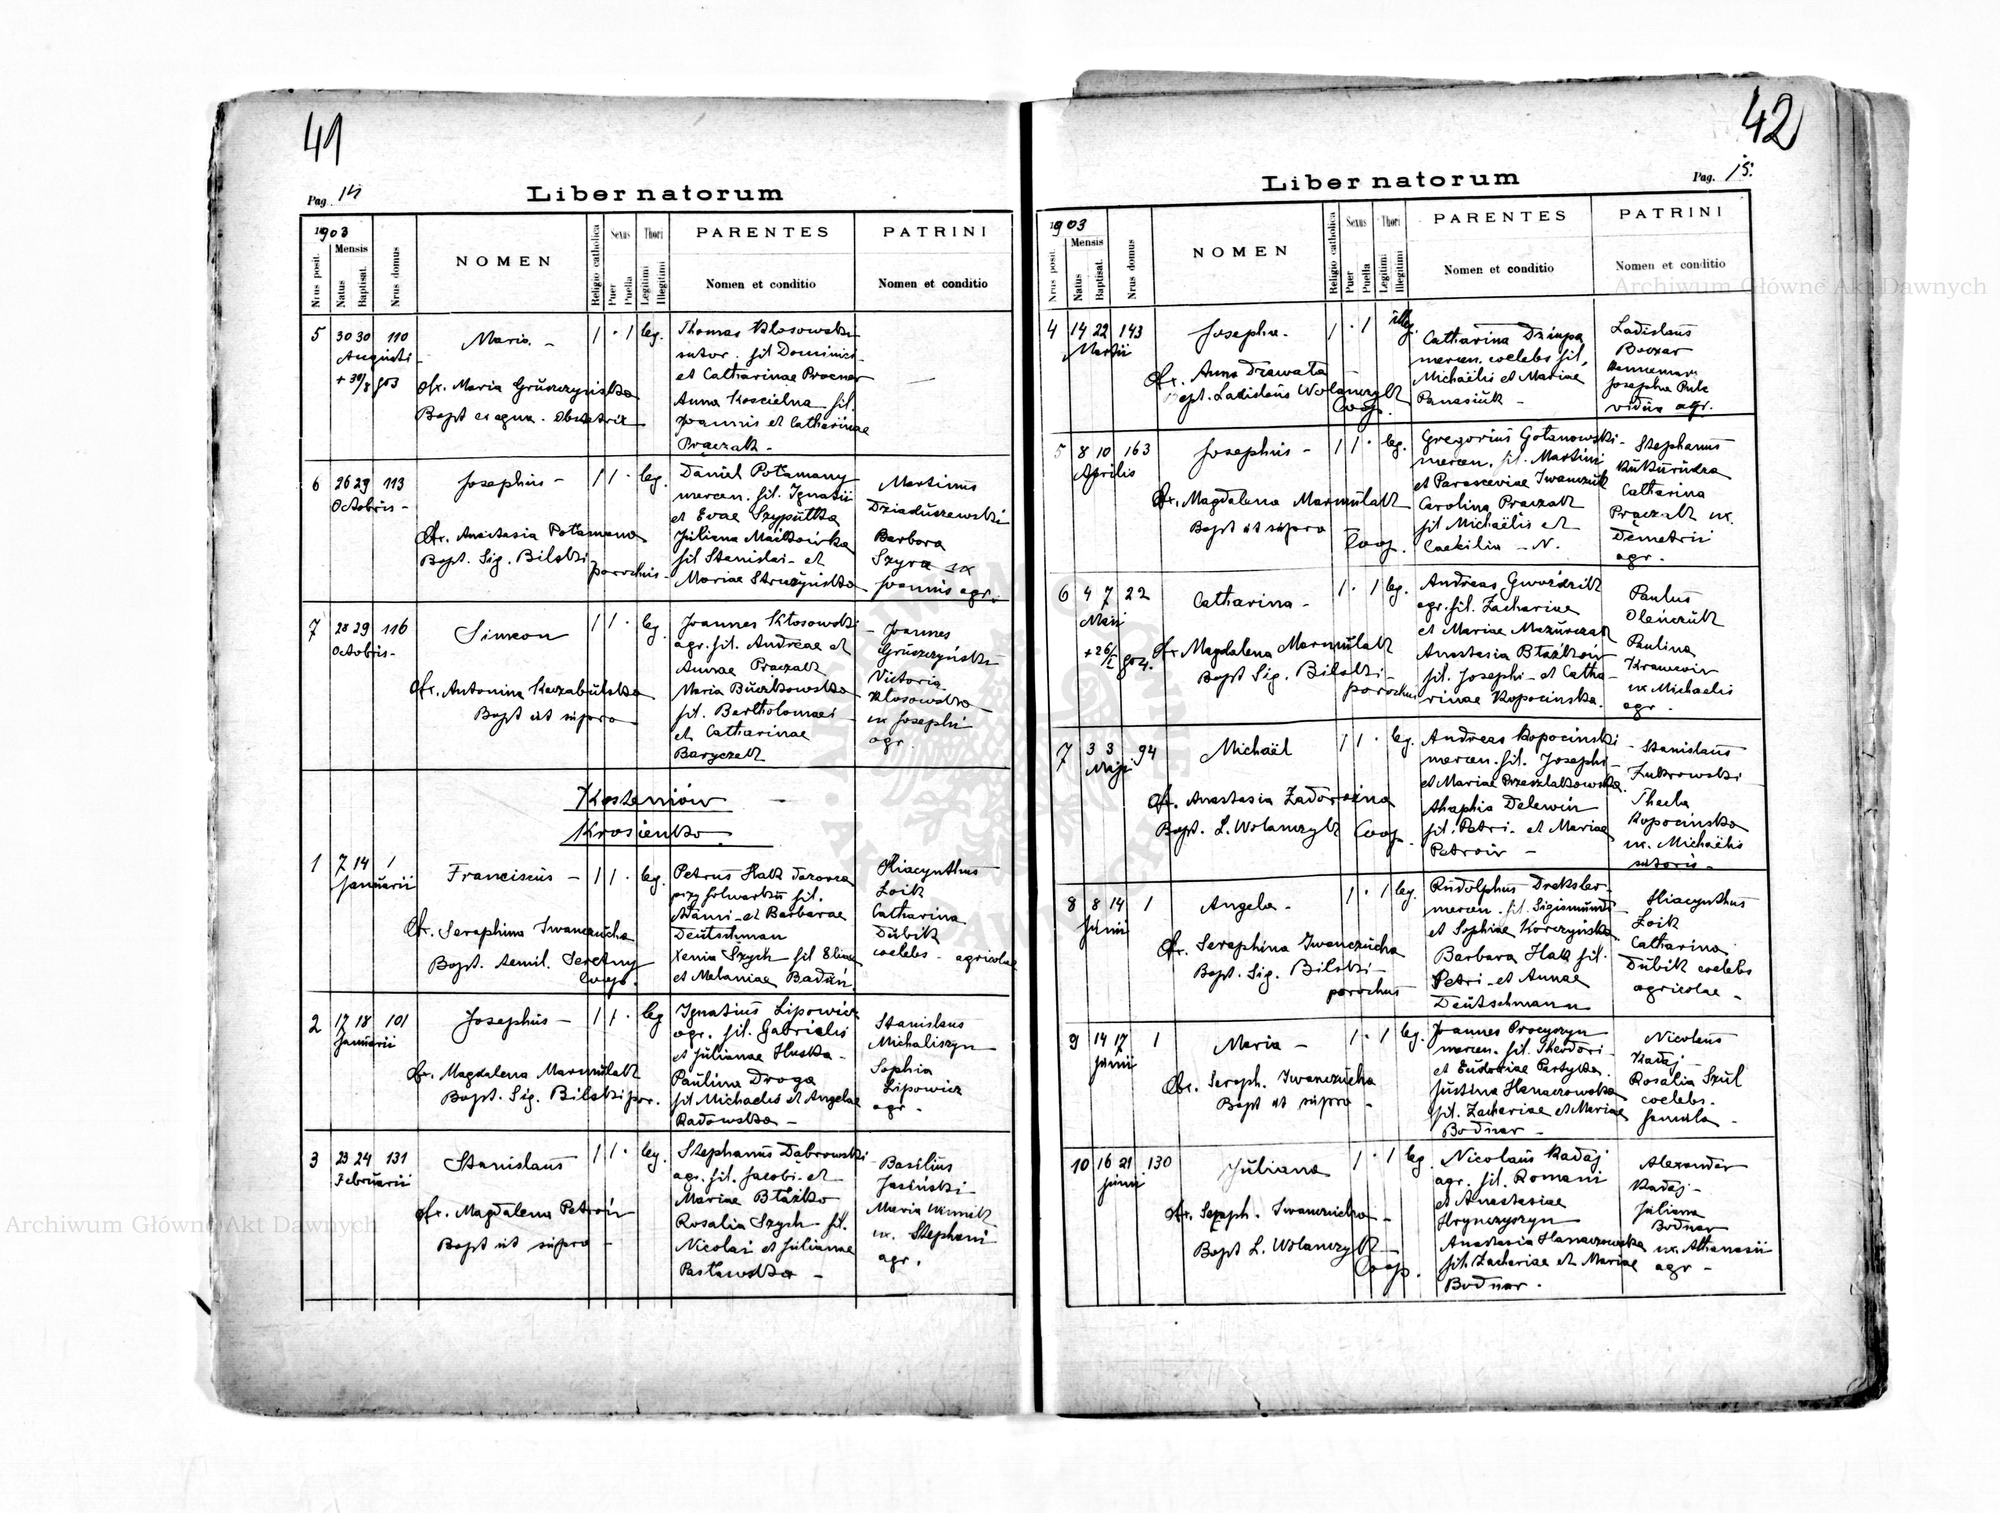 41
Pag. 14
Liber natorum
1903
Nrus posit.
Mensis
Natus
Baptisat.
Nrus domus
NOMEN
Religio catholica
Sexus
Puer
Puella
Thori
Legitimi
Illegitimi
PARENTES
Nomen et conditio
PATRINI
Nomen et conditio
5 30 30 110 Maria - 1 · 1 leg.
Augusti
+ 30/8 903
Obx. Maria Gruszczyńska
Bapt ex aqua. Obstetrix
Thomas Kłosowski
sutor. fil Dominici
et Catharinae Procner
Anna Koscielna fil.
Joannis et Catharinae
Praczak -
6 26 29 113 Josephus - 1 1 · leg.
Octobris -
Obx. Anastasia Potamana
Bapt. Sig. Bilski
parochus -
Daniel Potamany
mercen. fil. Ignatii
et Evae Szypułka
Juliana Maćkowska
fil Stanislai - et
Mariae Struzyńska
Martinus
Dziaduszewski
Barbara
Szyra ux
Joannis agr.
7 28 29 116 Simeon 1 1 · leg.
Octobris -
Obx. Antonina Kaczabulska
Bapt ut supra
Joannes Kłosowski
agr. fil. Andreae et
Annae Praczak
Maria Buczkowska
fil. Bartholomaei
et Catharinae
Baryczek
- Joannes
Gruszczyński
Victoria
Kłosowska
ux Josephi
agr.
Kosteniów
Krosienko
1 7 14 1 Franciscus - 1 1 · leg.
Januarii
Obx. Seraphina Iwanczucha
Bapt. Aemil. Seretny
Coop.
Petrus Hak dozorca
przy folwarku fil.
Adami - et Barbarae
Deutschman
Xenia Szych fil Eliae
et Melaniae Badan.
Hiacynthus
Łoik
Catharina
Dubik
coelebs - agricolae
2 17 18 101 Josephus - 1 1 · leg
Januarii
Obx. Magdalena Marmulak
Bapt. Sig. Bilski par.
Ignatius Lipowicz
agr. fil. Gabrielis
et Julianae Huska -
Paulina Droga
fil Michaelis et Angelae
Radowska -
Stanislaus
Michaliszyn
Sophia
Lipowicz
agr -
3 23 24 131 Stanislaus 1 1 · leg.
Februarii
Obx. Magdalena Petroń
Bapt ut supra -
Stephanus Dąbrowski
agr. fil. Jacobi - et
Mariae Błażko
Rosalia Szych - fil.
Nicolai et Julianae
Pasławska -
Basilius
Jasiński
Maria
ux. Stephani
agr.
42
Pag. 15.
Liber natorum
1903
Nrus posit.
Mensis
Natus
Baptisat.
Nrus domus
NOMEN
Religio catholica
Sexus
Puer
Puella
Thori
Legitimi
Illegitimi
PARENTES
Nomen et conditio
PATRINI
Nomen et conditio
4 14 22 143 Josepha - 1 · 1 illeg.
Martii
Obx. Anna Drawała
Bapt. Ladislaus Wolanczyk
Coop.
Catharina Dziupa
mercen. coelebs fil.
Michaëlis et Mariae
Panasiuk -
Ladislaus
Josepha
vidua agr.
5 8 10 163 Josephus - 1 1 · leg.
Aprilis
Obx. Magdalena Marmulak
Bapt ut supra -
Coop.
Gregorius Gołanowski
mercen. fil. Martini
et Parasceviae Iwanczuk
Carolina Praczak
fil Michaëlis et
Caecilia - N.
- Stephanus
Kukurudza
Catharina
Praczak ux.
Demetrii
agr.
6 4 7 22 Catharina - 1 · 1 leg.
Maii
+ 26/1 904.
Obx. Magdalena Marmulak
Bapt Sig. Bilski -
parochus
Andreas Gwoździk
agr. fil. Zachariae
et Mariae Mazurczak
Anastasia Błażkow
fil. Josephi - et Catha-
rinae Kopocinska.
Paulus
Olenczuk
Paulina
Krawców
ux Michaelis
agr -
7 3 3 94 Michaël 1 1 · leg.
Maji
Obx. Anastasia Zadorożna
Bapt. L. Wolanczyk Coop.
Andreas Kopocinski
mercen. fil. Josephi -
et Mariae Przeszlakowska
Ahaphia Delewin
fil. Petri - et Mariae
Petrów -
- Stanislaus
Zukrowski
Thecla
Kopocinska
ux. Michaëlis
sutoris -
8 8 14 1 Angela - 1 · 1 leg.
Junii
Obx. Seraphina Iwanczucha
Bapt. Sig. Bilski -
parochus
Rudolphus Dreksler -
mercen. fil. Sigismundi
et Sophiae Korczyńska
Barbara Hak fil.
Petri - et Annae
Deutschmann
Hiacynthus
Łoik
Catharina
Dubik coelebs
agricolae -
9 14 17 1 Maria - 1 · 1 leg.
Junii
Obx. Seraph. Iwanczucha
Bapt ut supra -
Joannes Procyszyn
mercen. fil. Theodori -
et Eudoxiae Partyka.
Justina Hanaczowska
fil. Zachariae et Mariae
Bodnar -
Nicolaus
Kadaj -
Rosalia Szul
coelebs -
famula -
10 16 21 130 Juliana 1 · 1 leg.
Junii
Obx. Seraph. Iwanczucha -
Bapt L. Wolanczyk -
Coop.
Nicolaus Kadaj
agr. fil. Romani
et Anastasiae
Hrynczyszyn
Anastasia Hanaczowska
fil. Zachariae et Mariae
Bodnar -
Alexander
Kadaj -
Juliana
Bodnar
ux. Athanasii
agr -
Archiwum Główne Akt Dawnych
Archiwum Główne Akt Dawnych